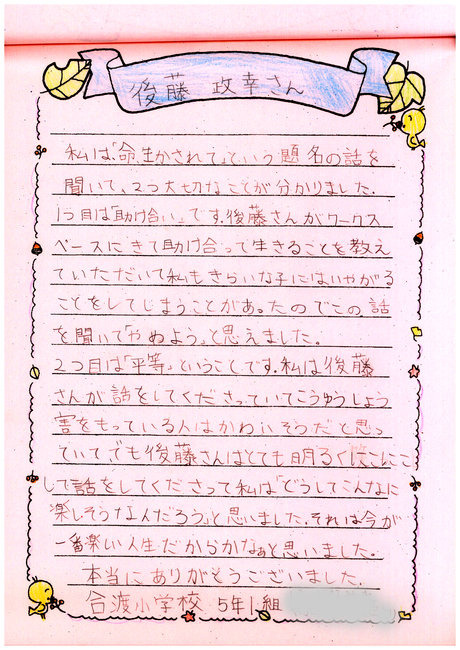 後藤 政幸さん
私は、「命、生かされて」という題名の話を
聞いて、2つ大切なことが分かりました。
1つ目は「助け合い」です。後藤さんがワークス
ペースにきて助け合って生きることを教え
ていただいて私もきらいな子にはいやがる
ことをしてしまうことがあったのでこの話
を聞いて「やめよう」と思えました。
2つ目は「平等」ということです。私は後藤
さんが話をしてくださっていてこうゆうしょう
害をもっている人はかわいそうだと思っ
ていてでも後藤さんはとても明るくにこにこ
して話をしてくださって私は「どうしてこんなに
楽しそうな人だろう」と思いました。それは今が
一番楽しい人生だからかなぁと思いました。
本当にありがとうございました。
合渡小学校 5年1組